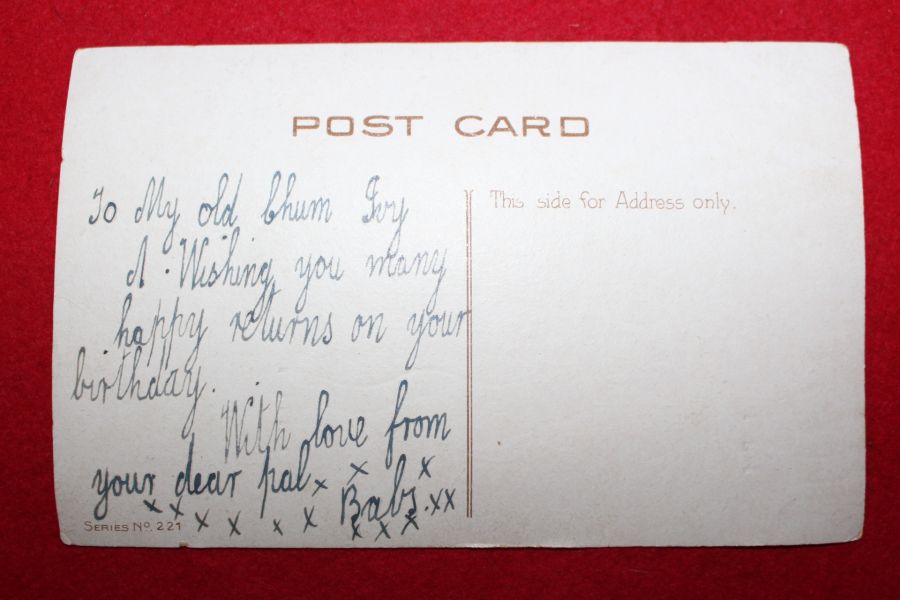 POST CARD
This side for Address only.
To My old Chum Ivy
A. Wishing you many
happy returns on your
birthday.
With love from
your dear pal x x x
Babs. x x
x x x x x x x x x
SERIES NO. 221